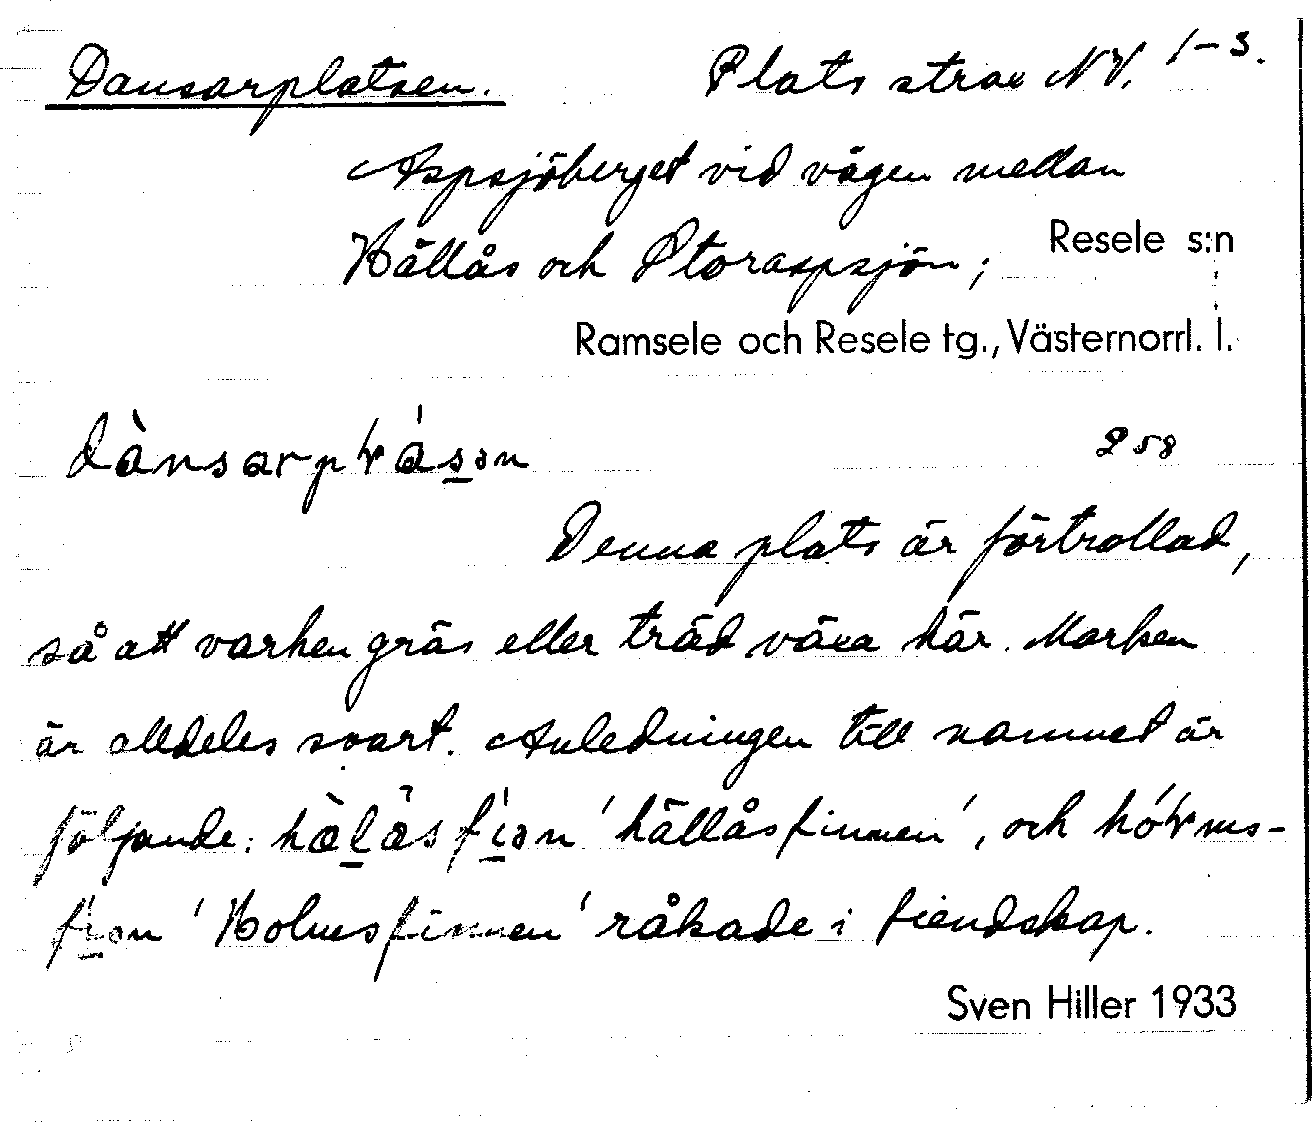 Dansarplatsen. Plats strax NV. 1-3.
Aspsjöberget vid vägen mellan
Hällås och Storaspsjön;
Resele s:n
Ramsele och Resele tg., Västernorrl. l.
258
Denna plats är förtrollad,
så att varken gräs eller träd växa här. Marken
är alldeles svart. Anledningen till namnet är
följande: 'hällåsfinnen', och
'Holmsfinnen' råkade i fiendskap.
Sven Hiller 1933